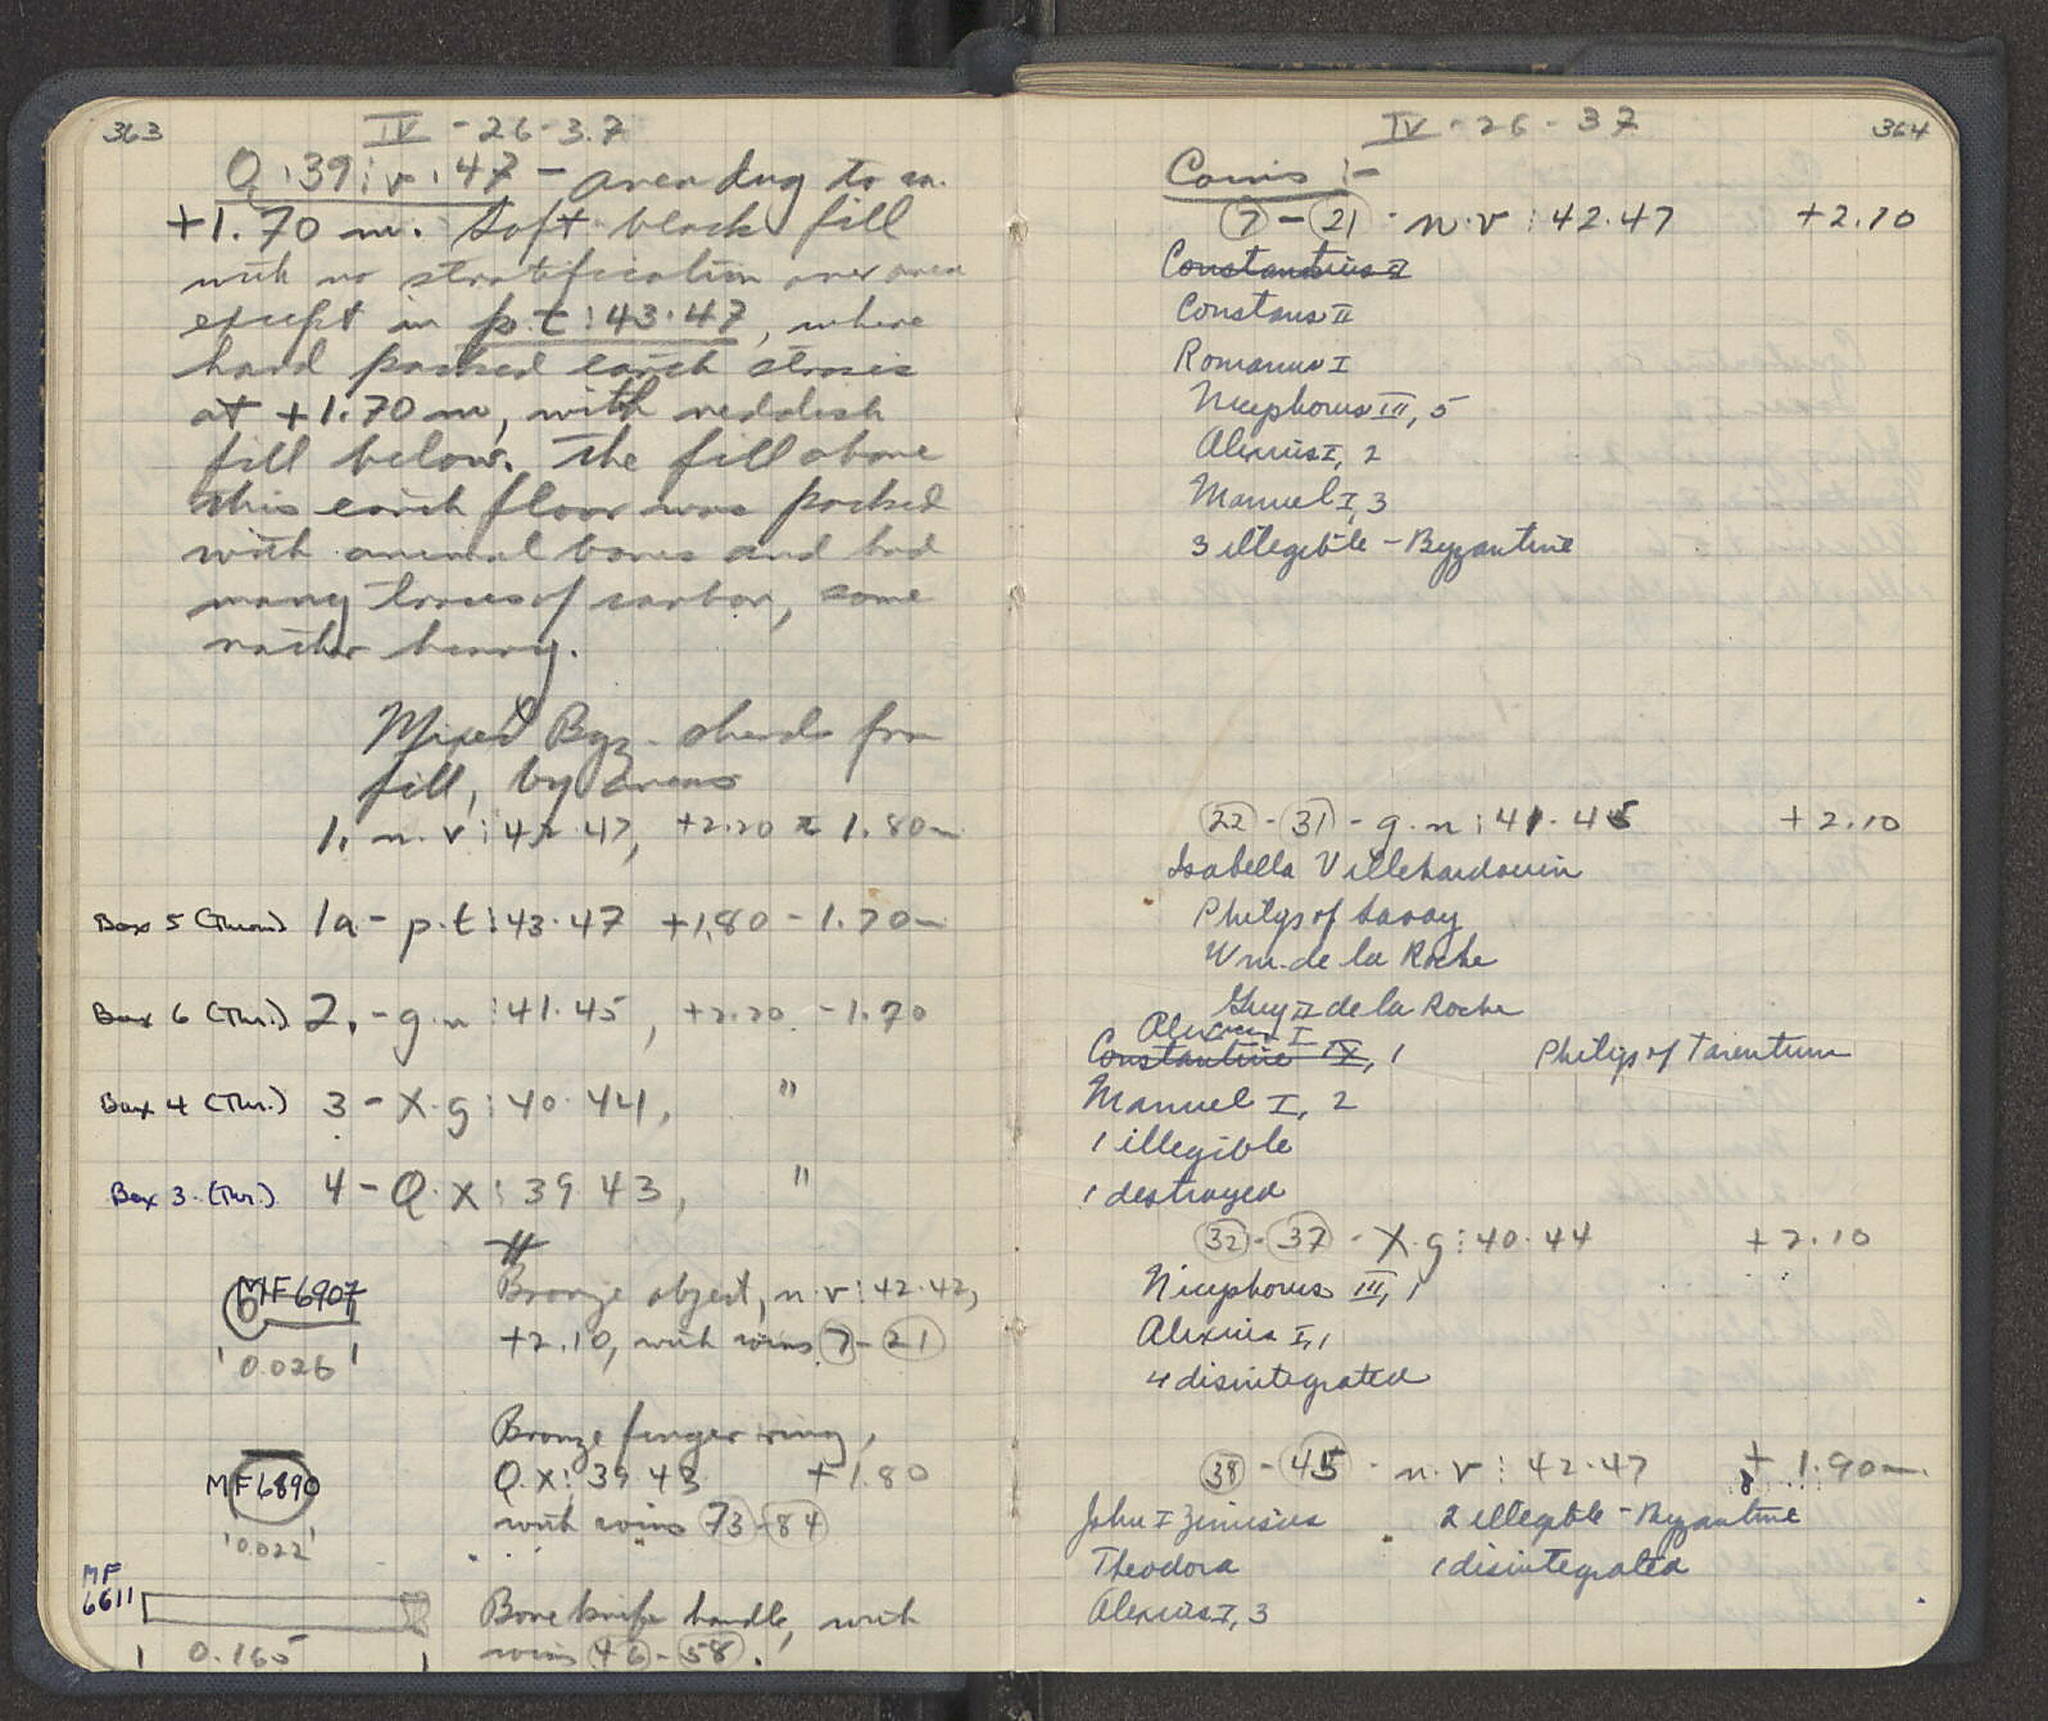 363
IV - 26 - 37
Q.39 : v.47 - area dug to ca.
+1.70 m. Soft black fill
with no stratification over area
except in p.t : 43.47, where
hard packed earth strosis
at +1.70 m, with reddish
fill below. The fill above
this earth floor was packed
with animal bones and had
many traces of carbon, some
rather heavy.
Mixed Byz. sherds from
fill, by areas
1. n.v : 42.47, +2.20 - 1.80m
Box 5 (Thom) 1a - p.t : 43.47 +1.80 - 1.70m
Box 6 (Thr.) 2. - g.n : 41.45, +2.20 - 1.70
Box 4 (Thr.) 3 - X.g : 40.44, "
Box 3 (Thr.) 4 - Q.X : 39.43, "
MF6907
0.026
Bronze object, n.v : 42.42,
+2.10, with coins 7 - 21
Bronze finger ring,
MF6890
0.022
Q.X : 39.43 +1.80
with coins 73 - 84
MF
6611
0.165
Bone knife handle, with
coins 46 - 58.
364
IV - 26 - 37
Coins :-
7 - 21 - n.v : 42.47 +2.10
Constantius II
Constans II
Romanus I
Nicephorus III, 5
Alexius I, 2
Manuel I, 3
3 illegible - Byzantine
22 - 31 - g.n : 41.45 +2.10
Isabella Villehardouin
Philip of Savoy
Wm. de la Roche
Guy II de la Roche
Alexius I
Constantine IX, 1 Philip of Tarentum
Manuel I, 2
1 illegible
1 destroyed
32 - 37 - X.g : 40.44 +2.10
Nicephorus III, 1
Alexius I, 1
4 disintegrated
38 - 45 - n.v : 42.47 +1.90m.
8
John I Zimisces 2 illegible - Byzantine
Theodora 1 disintegrated
Alexius I, 3